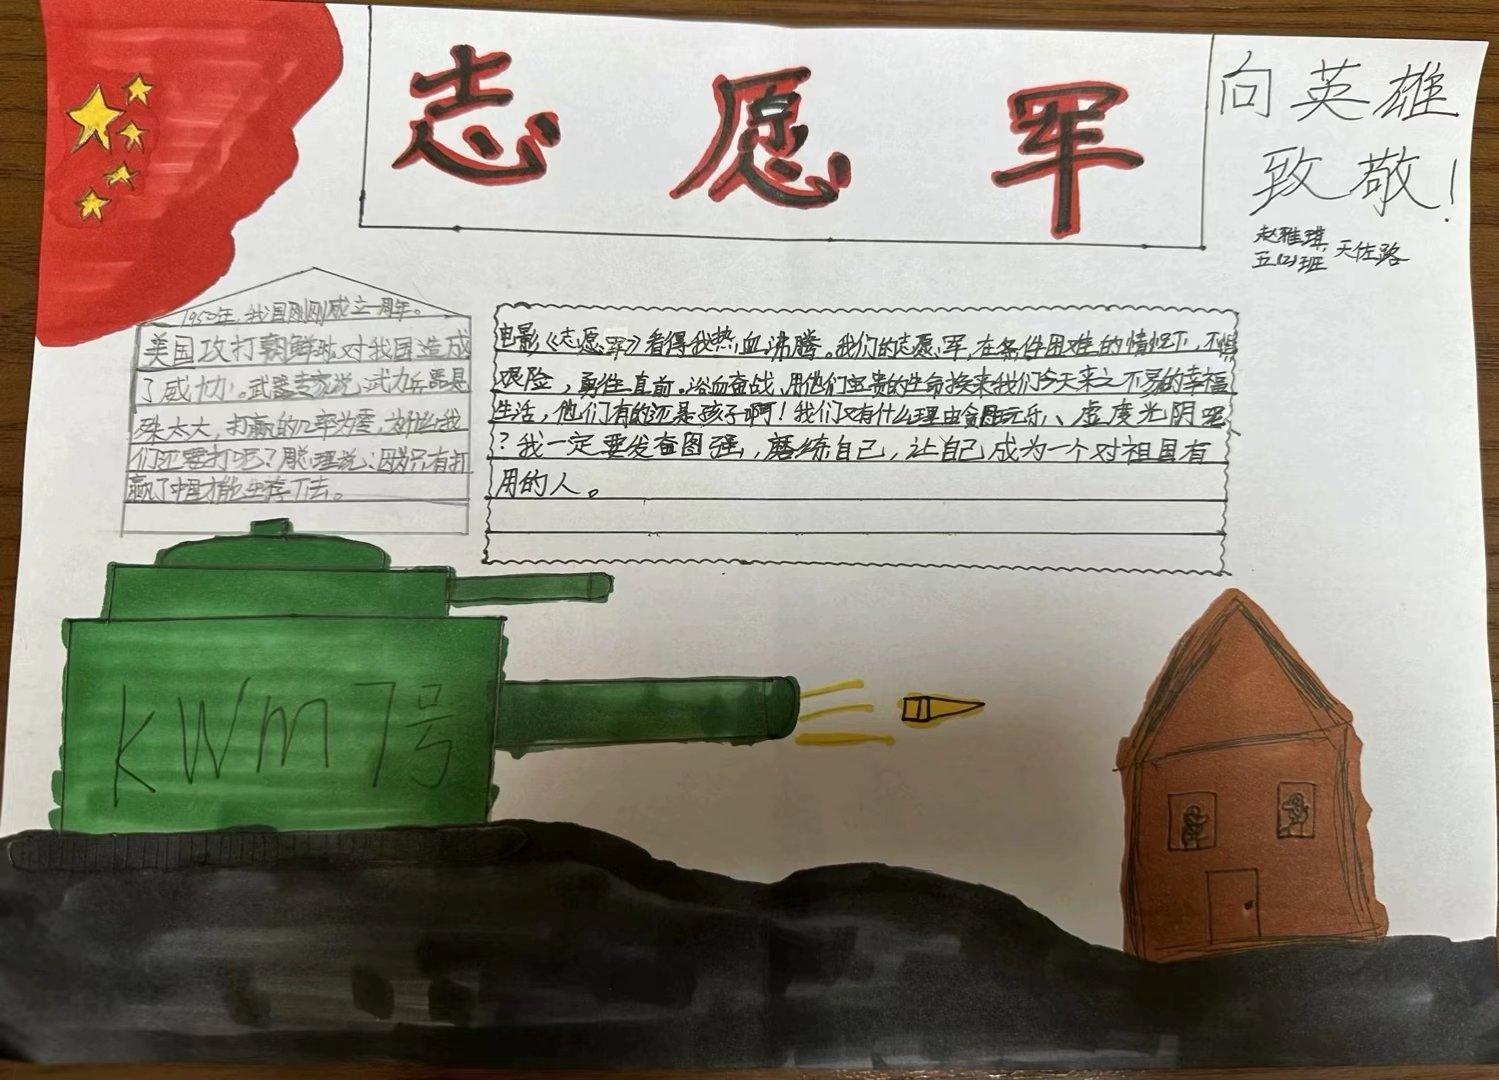 志愿军
向英雄
致敬！
赵雅琪
五(2)班 天佐路
1950年，我国刚刚成立一周年。
美国攻打朝鲜，对我国造成
了威力。武器专家说，武力兵器悬
殊太大，打赢的几率为零，为什么我
们还要打呢？周总理说：因为只有打
赢了中国才能生存下去。
电影《志愿军》看得我热血沸腾。我们的志愿军，在条件困难的情况下，不惧
艰险，勇往直前。浴血奋战，用他们宝贵的生命换来我们今天来之不易的幸福
生活，他们有的还是孩子啊！我们又有什么理由贪图玩乐、虚度光阴呢
？我一定要发奋图强，磨练自己，让自己成为一个对祖国有
用的人。
KWM 7号